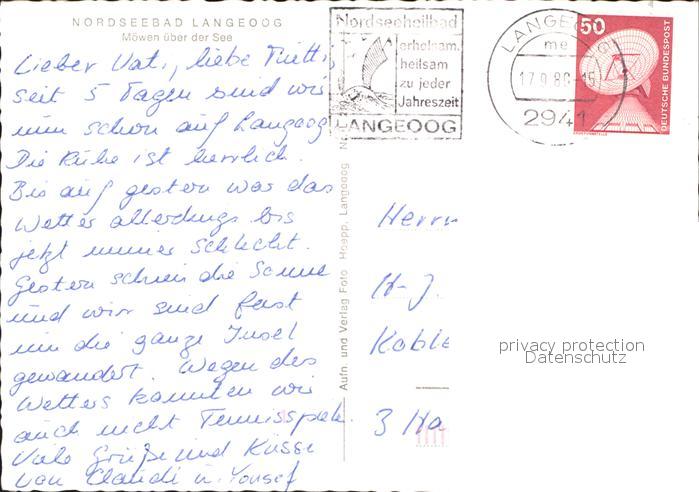 NORDSEEBAD LANGEOOG
Möwen über der See
Lieber Vati, liebe
seit 5 Tagen sind wir
nun schon auf Langeoog
Die Ruhe ist herrlich.
Bis auf gestern war das
Wetter allerdings bis
jetzt immer schlecht.
Gestern schien die Sonne
und wir sind fast
um die ganze Insel
gewandert. Wegen des
Wetters konnten wir
auch nicht Tennisspielen.
Viele Grüße und Küsse
von Claudi u. Yousef
Aufn. und Verlag Foto Hoepp, Langeoog
Nordseeheilbad
erholsam,
heilsam
zu jeder
Jahreszeit
LANGEOOG
LANGEOOG
me
17.9.80-15
2941
50
DEUTSCHE BUNDESPOST
Herrn
H-J.
Koble
3 Ha
privacy protection
Datenschutz